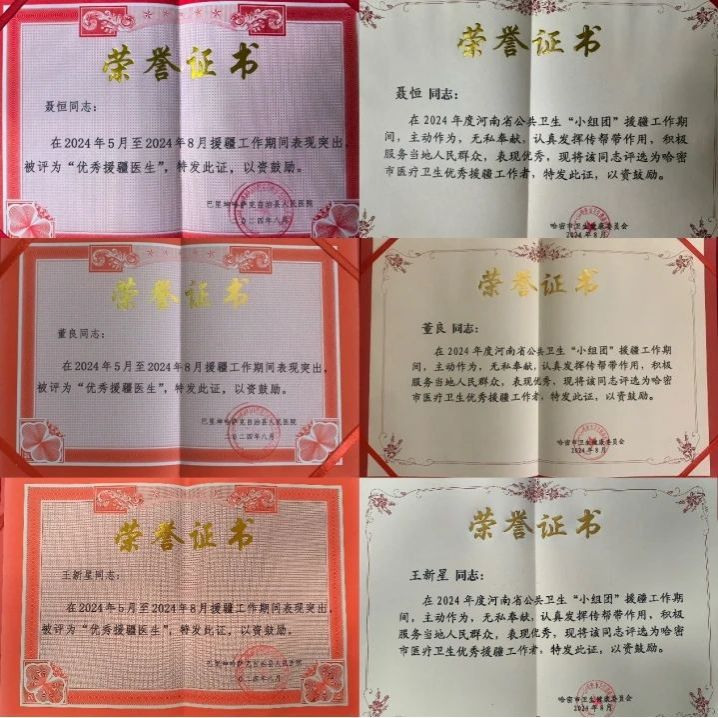 荣誉证书
聂恒同志：
在2024年5月至2024年8月援疆工作期间表现突出，
被评为“优秀援疆医生”，特发此证，以资鼓励。
巴里坤哈萨克自治县人民医院
二〇二四年八月
荣誉证书
聂恒 同志：
在2024年度河南省公共卫生“小组团”援疆工作期
间，主动作为，无私奉献，认真发挥传帮带作用，积极
服务当地人民群众，表现优秀，现将该同志评选为哈密
市医疗卫生优秀援疆工作者，特发此证，以资鼓励。
哈密市卫生健康委员会
2024年8月
荣誉证书
董良同志：
在2024年5月至2024年8月援疆工作期间表现突出，
被评为“优秀援疆医生”，特发此证，以资鼓励。
巴里坤哈萨克自治县人民医院
二〇二四年八月
荣誉证书
董良 同志：
在2024年度河南省公共卫生“小组团”援疆工作期
间，主动作为，无私奉献，认真发挥传帮带作用，积极
服务当地人民群众，表现优秀，现将该同志评选为哈密
市医疗卫生优秀援疆工作者，特发此证，以资鼓励。
哈密市卫生健康委员会
2024年8月
荣誉证书
王新星同志：
在2024年5月至2024年8月援疆工作期间表现突出，
被评为“优秀援疆医生”，特发此证，以资鼓励。
巴里坤哈萨克自治县人民医院
二〇二四年八月
荣誉证书
王新星 同志：
在2024年度河南省公共卫生“小组团”援疆工作期
间，主动作为，无私奉献，认真发挥传帮带作用，积极
服务当地人民群众，表现优秀，现将该同志评选为哈密
市医疗卫生优秀援疆工作者，特发此证，以资鼓励。
哈密市卫生健康委员会
2024年8月